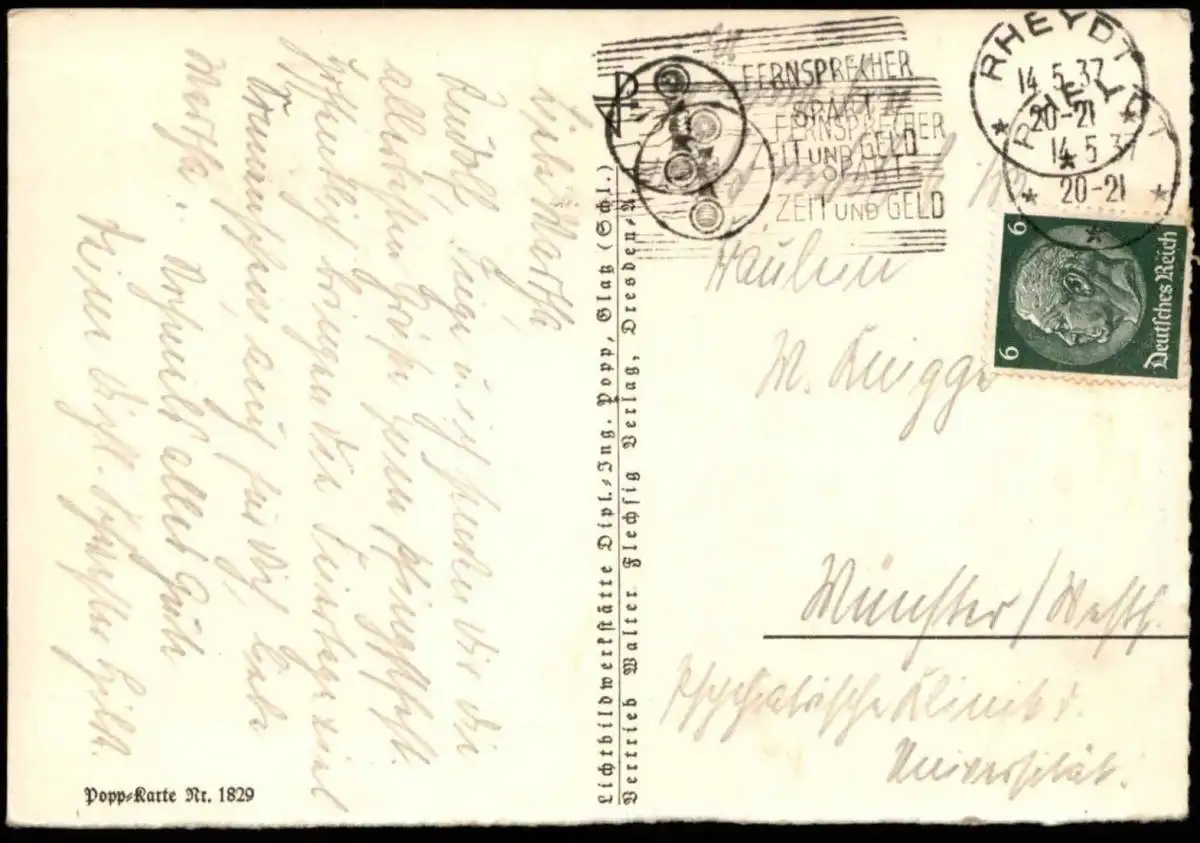 Liebe Martha,
Rudolf, Inge u. ich senden Dir die
allerbesten Grüße zum Pfingstfest.
Hoffentlich bringen die Feiertage viel
Sonnenschein auch für Dich, liebe
Martha. Nochmals alles Gute
Deine dich. Schwester Hilde.
Popp-Karte Nr. 1829
Lichtbildwerkstätte Dipl.-Ing. Popp, Glatz (Schl.)
Vertrieb Walter Flechsig Verlag, Dresden-A
FERNSPRECHER
SPART
ZEIT UND GELD
FERNSPRECHER
SPART
ZEIT UND GELD
RHEYDT
14.5.37
20-21
RHEYDT
14.5.37
20-21
6
6
Deutsches Reich
Fräulein
M. Knigge
Münster/Westf.
Psychiatrische Klinik d.
Universität.